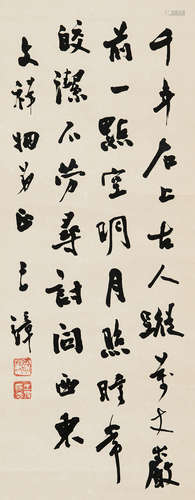 千年石上古人蹤萬丈巖
前一點空明月照時常
皎潔不勞尋討問西東
文姻正